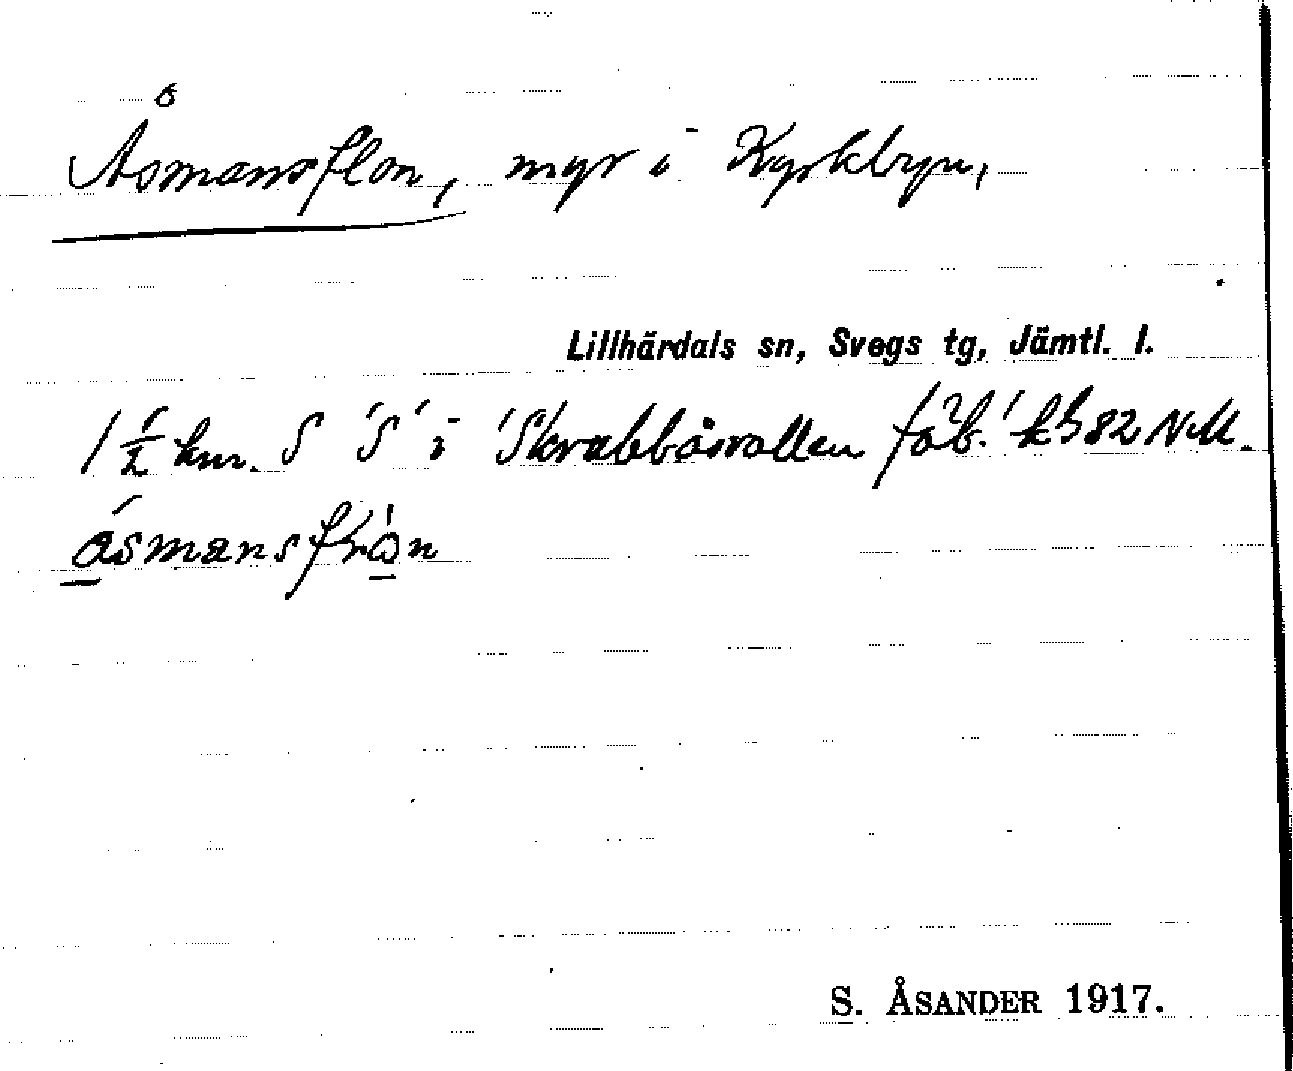 Åsmansflon, myr i Kyrkbyn,
Lillhärdals sn, Svegs tg, Jämtl. l.
1 1/2 km. S 'S' i 'Skrabbåsvallen fäb.' kb 82 NM.
åsmansfrån
S. ÅSANDER 1917.